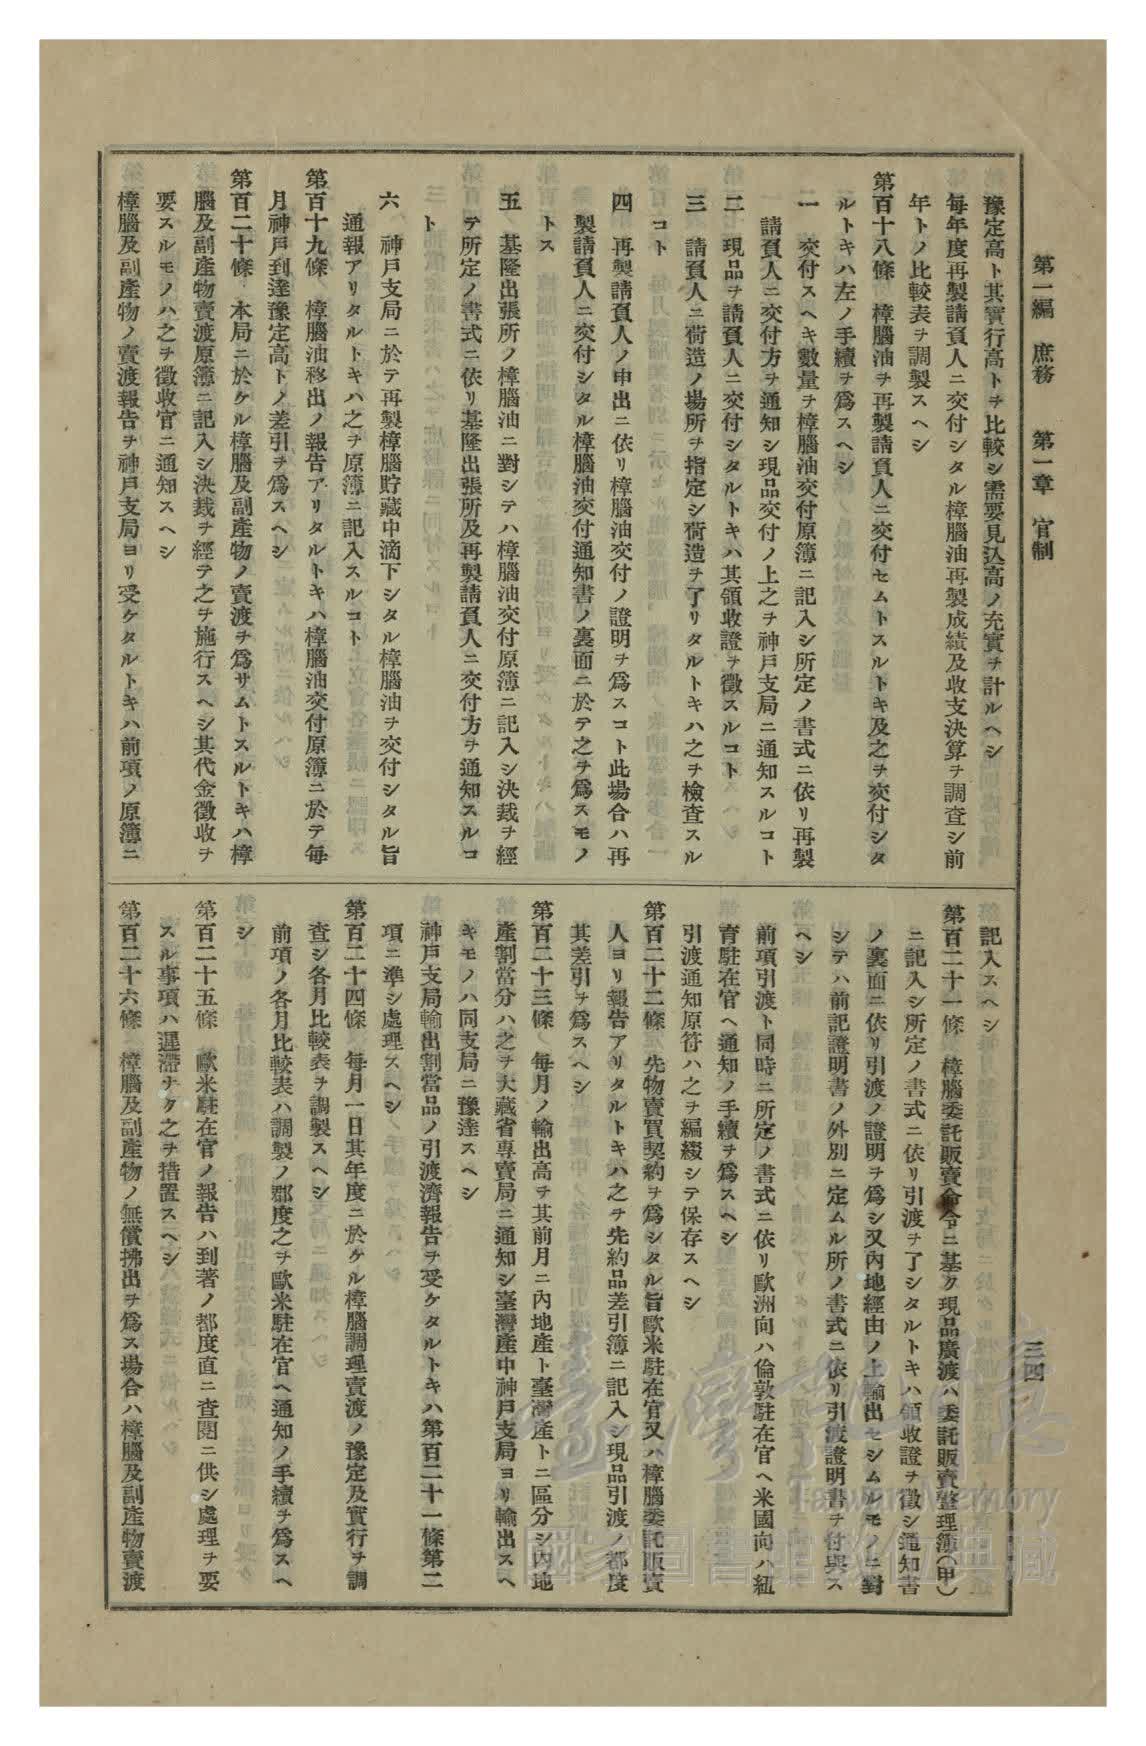 第一編　庶務　　第一章　官制
三四
豫定高ト其實行高トヲ比較シ需要見込高ノ充實ヲ計ルヘシ
每年度再製請負人ニ交付シタル樟腦油再製成績及收支決算ヲ調査シ前
年トノ比較表ヲ調製スヘシ
第百十八條　樟腦油ヲ再製請負人ニ交付セムトスルトキ及之ヲ交付シタ
ルトキハ左ノ手續ヲ爲スヘシ
一　交付スヘキ數量ヲ樟腦油交付原簿ニ記入シ所定ノ書式ニ依リ再製
請負人ニ交付方ヲ通知シ現品交付ノ上之ヲ神戶支局ニ通知スルコト
二　現品ヲ請負人ニ交付シタルトキハ其領收證ヲ徵スルコト
三　請負人ニ荷造ノ場所ヲ指定シ荷造ヲ了リタルトキハ之ヲ檢查スル
コト
四　再製請負人ノ申出ニ依リ樟腦油交付ノ證明ヲ爲スコト此場合ハ再
製請負人ニ交付シタル樟腦油交付通知書ノ裏面ニ於テ之ヲ爲スモノ
トス
五　基隆出張所ノ樟腦油ニ對シテハ樟腦油交付原簿ニ記入シ決裁ヲ經
テ所定ノ書式ニ依リ基隆出張所及再製請負人ニ交付方ヲ通知スルコ
ト
六　神戶支局ニ於テ再製樟腦貯藏中滴下シタル樟腦油ヲ交付シタル旨
通報アリタルトキハ之ヲ原簿ニ記入スルコト
第百十九條　樟腦油移出ノ報告アリタルトキハ樟腦油交付原簿ニ於テ每
月神戶到達豫定高トノ差引ヲ爲スヘシ
第百二十條　本局ニ於ケル樟腦及副產物ノ賣渡ヲ爲サムトスルトキハ樟
腦及副產物賣渡原簿ニ記入シ決裁ヲ經テ之ヲ施行スヘシ其代金徵收ヲ
要スルモノハ之ヲ徵收官ニ通知スヘシ
樟腦及副產物ノ賣渡報告ヲ神戶支局ヨリ受ケタルトキハ前項ノ原簿ニ
記入スヘシ
第百二十一條　樟腦委託販賣命令ニ基ク現品廣渡ハ委託販賣整理簿(甲)
ニ記入シ所定ノ書式ニ依リ引渡ヲ了シタルトキハ領收證ヲ徵シ通知書
ノ裏面ニ依リ引渡ノ證明ヲ爲シ又內地經由ノ上輸出セシムルモノニ對
シテハ前記證明書ノ外別ニ定ムル所ノ書式ニ依リ引渡證明書ヲ付與ス
ヘシ
前項引渡ト同時ニ所定ノ書式ニ依リ歐洲向ハ倫敦駐在官ヘ米國向ハ紐
育駐在官ヘ通知ノ手續ヲ爲スヘシ
引渡通知原符ハ之ヲ編綴シテ保存スヘシ
第百二十二條　先物賣買契約ヲ爲シタル旨歐米駐在官又ハ樟腦委託販賣
人ヨリ報告アリタルトキハ之ヲ先約品差引簿ニ記入シ現品引渡ノ都度
其差引ヲ爲スヘシ
第百二十三條　每月ノ輸出高ヲ其前月ニ內地產ト臺灣產トニ區分シ內地
產割當分ハ之ヲ大藏省專賣局ニ通知シ臺灣產中神戶支局ヨリ輸出スヘ
キモノハ同支局ニ豫達スヘシ
神戶支局輸出割當品ノ引渡濟報告ヲ受ケタルトキハ第百二十一條第二
項ニ準シ處理スヘシ
第百二十四條　每月一日其年度ニ於ケル樟腦調理賣渡ノ豫定及實行ヲ調
查シ各月比較表ヲ調製スヘシ
前項ノ各月比較表ハ調製ノ都度之ヲ歐米駐在官ヘ通知ノ手續ヲ爲スヘ
シ
第百二十五條　歐米駐在官ノ報告ハ到著ノ都度直ニ查閱ニ供シ處理ヲ要
スル事項ハ遲滯ナク之ヲ措置スヘシ
第百二十六條　樟腦及副產物ノ無償拂出ヲ爲ス場合ハ樟腦及副產物賣渡
臺灣記憶
Taiwan Memory
國家圖書館數位典藏